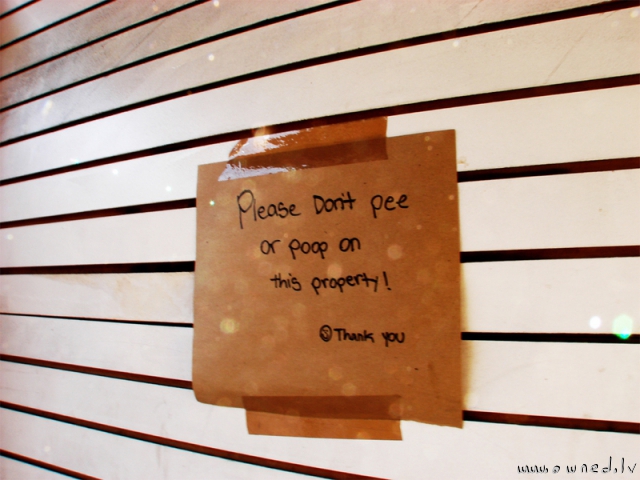 Please Don't pee
or poop on
this property!
☺Thank you
www.owned.lv